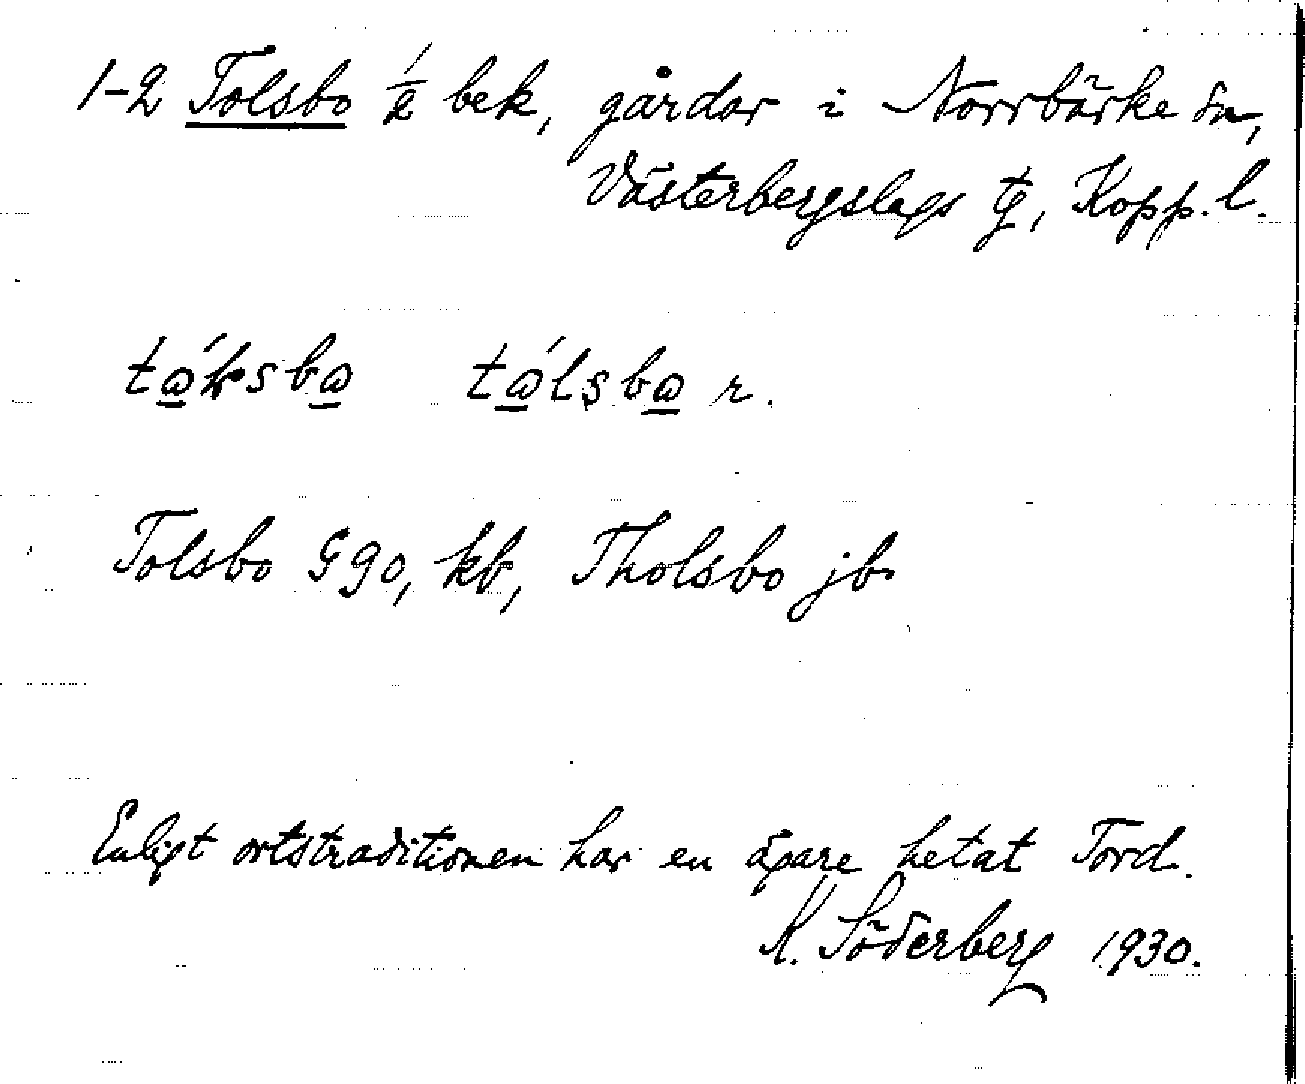 1-2 Tolsbo bek, gårdar i Norrbärke sn,
Västerbergslags tg, Kopp. l.
Tolsbo G 90, kb, Tholsbo jb
Enligt ortstraditionen har en ägare hetat Tord.
K. Söderberg 1930.